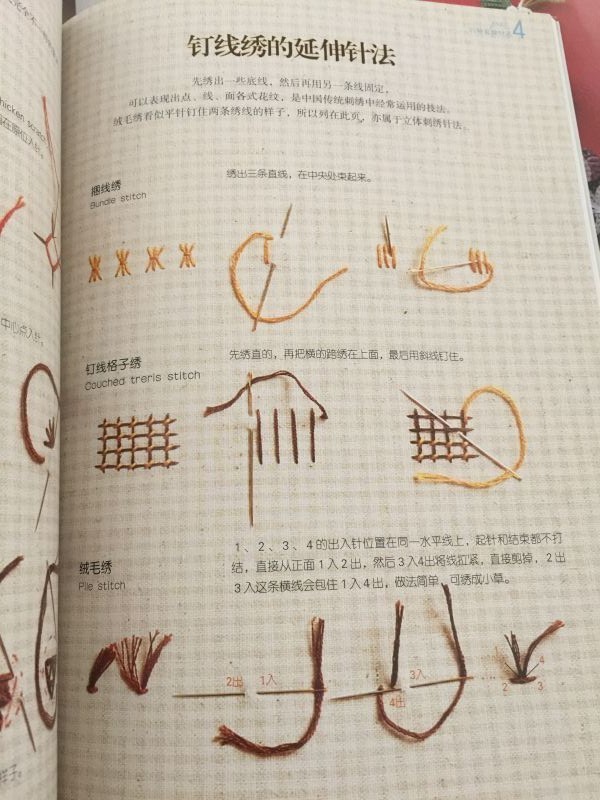 4
钉线绣的延伸针法
先绣出一些底线，然后再用另一条线固定，
可以表现出点、线、面各式花纹，是中国传统刺绣中经常运用的技法。
绒毛绣看似平针钉住两条绣线的样子，所以列在此页，亦属于立体刺绣针法。
捆线绣
Bundle stitch
绣出三条直线，在中央处束起来。
钉线格子绣
Couched treris stitch
先绣直的，再把横的跨绣在上面，最后用斜线钉住。
绒毛绣
Pile stitch
1、2、3、4的出入针位置在同一水平线上，起针和结束都不打
结，直接从正面1入2出，然后3入4出将线拉紧，直接剪掉，2出
3入这条横线会包住1入4出，做法简单，可绣成小草。
2出
1入
4出
3入
1
4
2
3
hicken scratch
中心点入针。
样子。